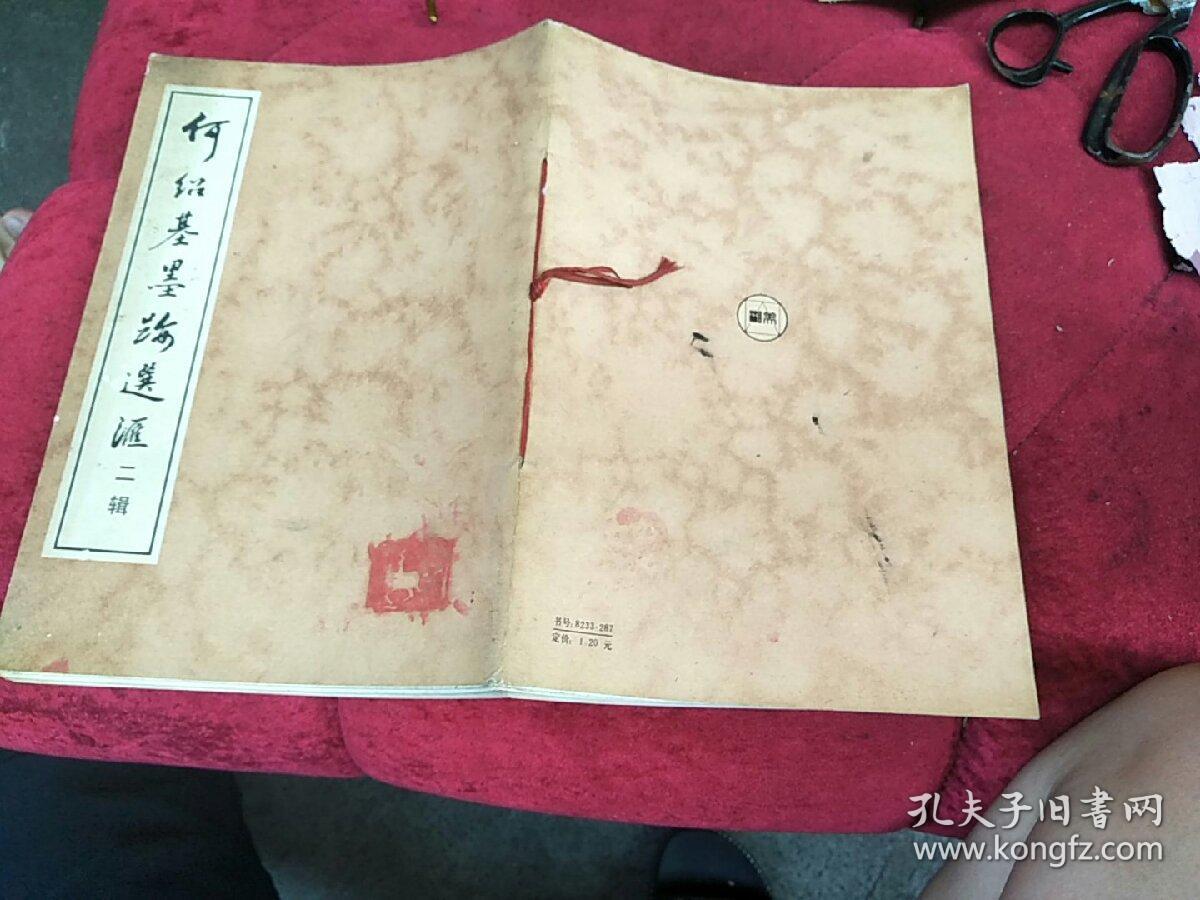 何绍基墨迹選滙二辑
书号:8233·287
定价:1.20 元
孔夫子旧书网
www.kongfz.com